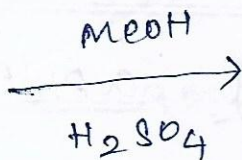 MeOH
H₂SO₄